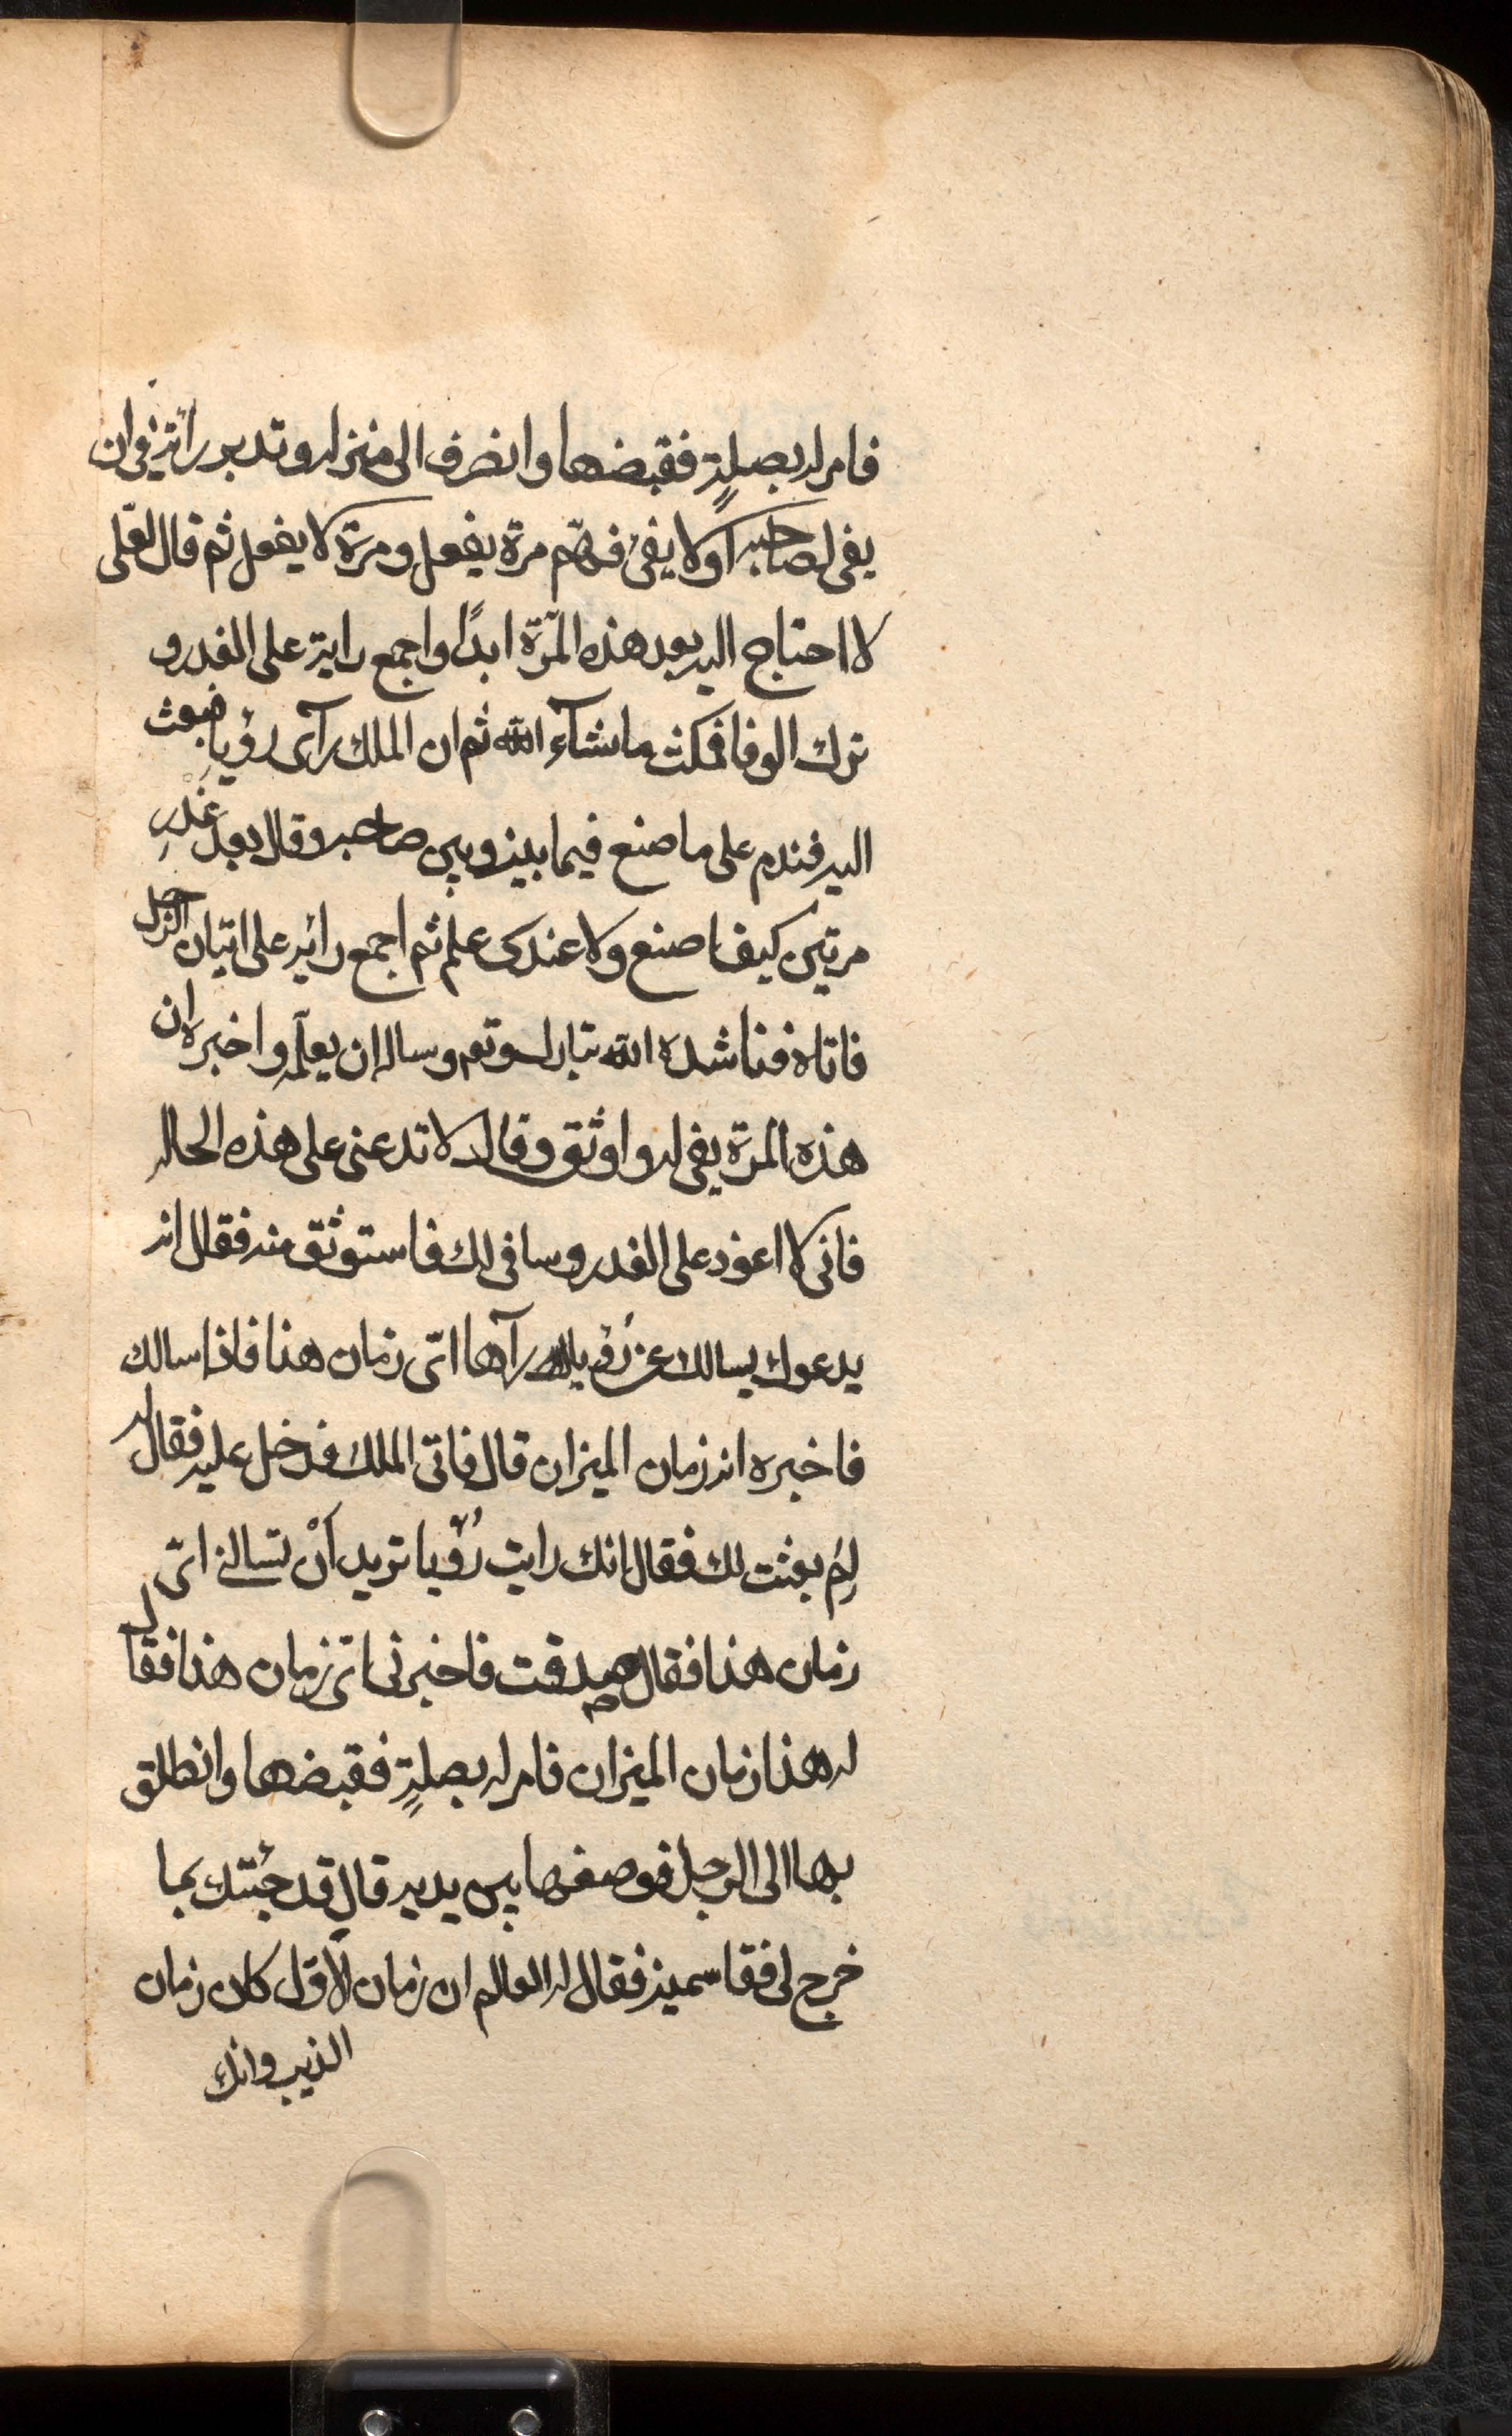 فامر له بصلةٍ فقبضها وانصرف الى منزله وتدبر رائه في ان
يفى لصاحبه اولا يفى فهمّ مرة يفعل ومرة لا يفعل ثم قال لعلى
لا احتاج اليه بعد هذه المرّة ابدًا واجمع رايه على الغدر و
ترك الوفا فمكث ما شآء الله ثم ان الملك رآى رؤيا فبعث
اليه فندم على ما صنع فيما بينه وبين صاحبه وقال بعد غَدْرِ
مرتين كيف اصنع ولا عندى علم ثم اجمع رائه على اتيان الرجل
فاتاه فناشده الله تبارك وتعـ وساله ان يعلّمه واخبره ان
هذه المرّة يفى له واوثق وقال لا تدعنى على هذه الحاله
فانى لا اعود على الغدر وسافى لك فاستوثق منه فقال انه
يدعوك يسالك عن رُؤيا رآها اىّ زمان هذا فاذا سالك
فاخبره انه زمان الميزان قال فاتى الملك فدخل عليه فقال له
لِمَ بعثت لك فقال انك رايت رُؤيا تريد اَنْ تسالنى اىّ
زمان هذا فقال صدقت فاخبرنى اىّ زمان هذا فقال
له هذا زمان الميزان فامر له بصلةٍ فقبضها وانطلق
بها الى الرجل فوضعها بين يديه قال قد جئتك بما
خرج لى فقاسمينه فقال له العالم ان زمان الاوّل كان زمان
الذيب وانك